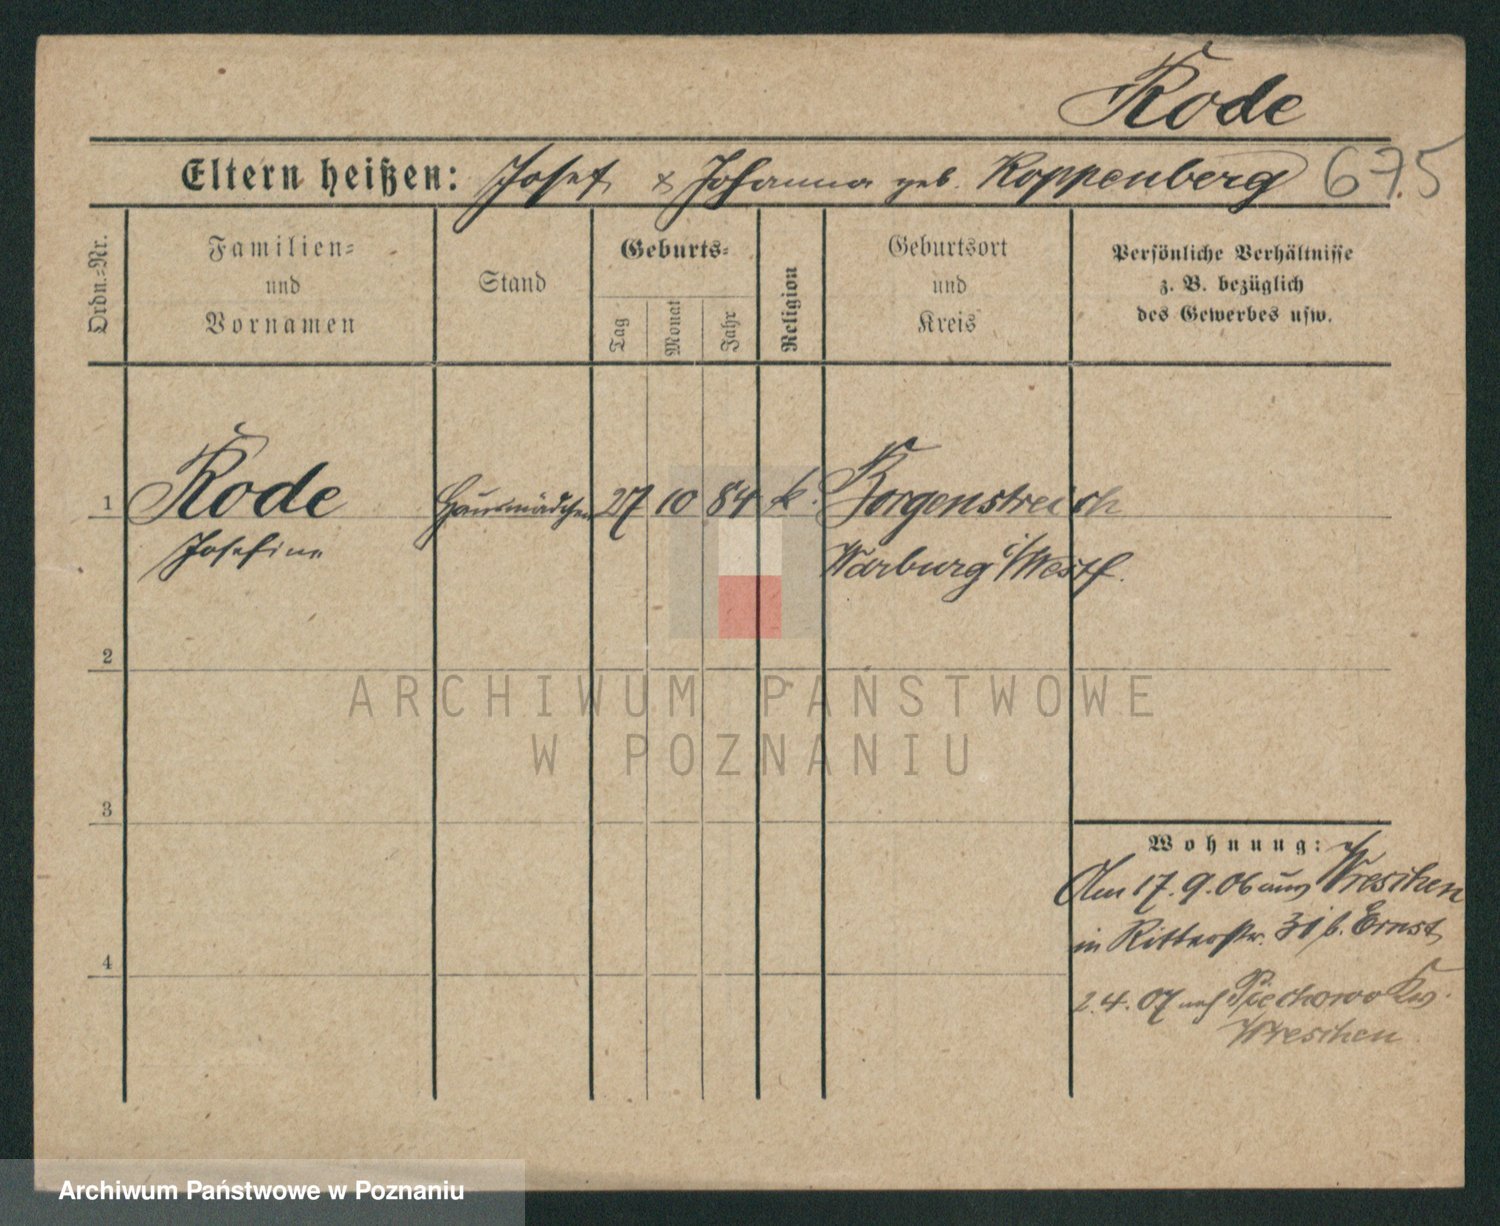 Rode
Eltern heißen: Josef & Johanna geb. Koppenberg 675
Ordn.=Nr.
Familien=
und
Vornamen
Stand
Geburts=
Tag
Monat
Jahr
Religion
Geburtsort
und
Kreis
Persönliche Verhältnisse
z. B. bezüglich
des Gewerbes usw.
1 Rode Hausmädchen 27 10 84 k. Borgenstreich
Josefine Warburg i/Westf.
2
ARCHIWUM PAŃSTWOWE
W POZNANIU
3
Wohnung:
Am 17.9.06 aus Wreschen
in Ritterstr. 31 b. Ernst
4
2.4.07 nach Piechowo Krs.
Wreschen
Archiwum Państwowe w Poznaniu